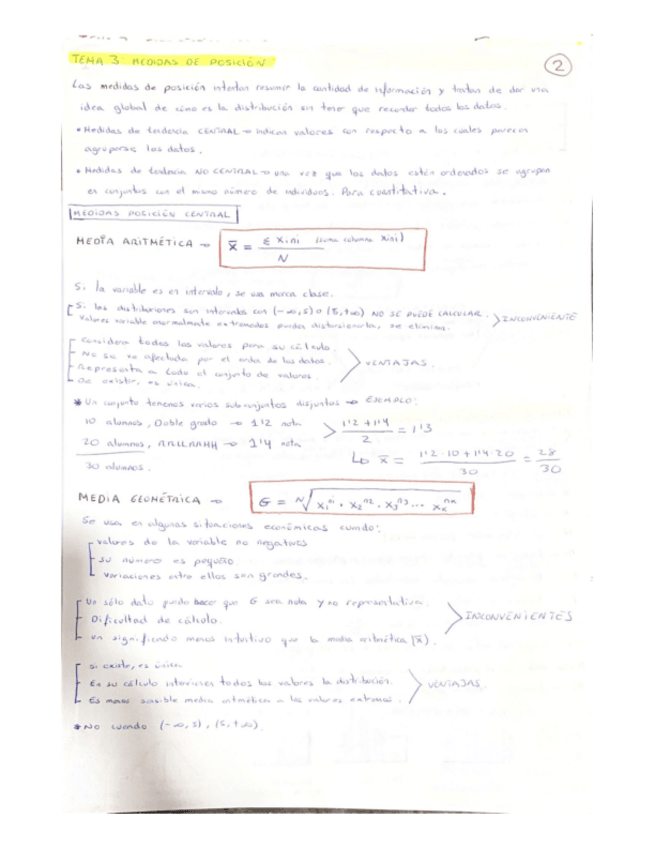 TEMA 3: MEDIDAS DE POSICIÓN
2
Las medidas de posición intentan resumir la cantidad de información y tratan de dar una
idea global de cómo es la distribución sin tener que recordar todos los datos.
* Medidas de tendencia CENTRAL → indican valores con respecto a los cuales parecen
agruparse los datos.
* Medidas de tendencia NO CENTRAL → una vez que los datos estén ordenados se agrupan
en conjuntos con el mismo número de individuos. Para cuantitativa.
MEDIDAS POSICIÓN CENTRAL
MEDIA ARITMÉTICA → x̄ = Σ xi ni (suma columna xini) / N
Si la variable es en intervalo, se usa marca clase.
Si las distribuciones son intervalos con (-∞, 5) o (5, +∞) NO SE PUEDE CALCULAR.
Valores variable anormalmente extremados pueden distorsionarla, se eliminan.
INCONVENIENTE
Considera todos los valores para su cálculo.
No se ve afectada por el orden de los datos.
Representa a todo el conjunto de valores.
De existir, es única.
VENTAJAS.
* Un conjunto tenemos varios subconjuntos disjuntos → EJEMPLO:
10 alumnos, Doble grado → 1'2 nota
20 alumnos, RRLLRRHH → 1'4 nota
30 alumnos.
1'2 + 1'4 / 2 = 1'3
↳ x̄ = 1'2 · 10 + 1'4 · 20 / 30 = 28 / 30
MEDIA GEOMÉTRICA → G = ᴺ√ x₁ⁿ¹ · x₂ⁿ² · x₃ⁿ³ ... xₖⁿᵏ
Se usa en algunas situaciones económicas cuando:
valores de la variable no negativos
su número es pequeño.
variaciones entre ellos son grandes.
Un sólo dato puede hacer que G sea nula y no representativa.
Dificultad de cálculo.
Un significado menos intuitivo que la media aritmética (x̄).
INCONVENIENTES
Si existe, es única.
En su cálculo intervienen todos los valores la distribución.
Es menos sensible media aritmética a los valores extremos.
VENTAJAS.
* NO cuando (-∞, 5), (5, +∞)